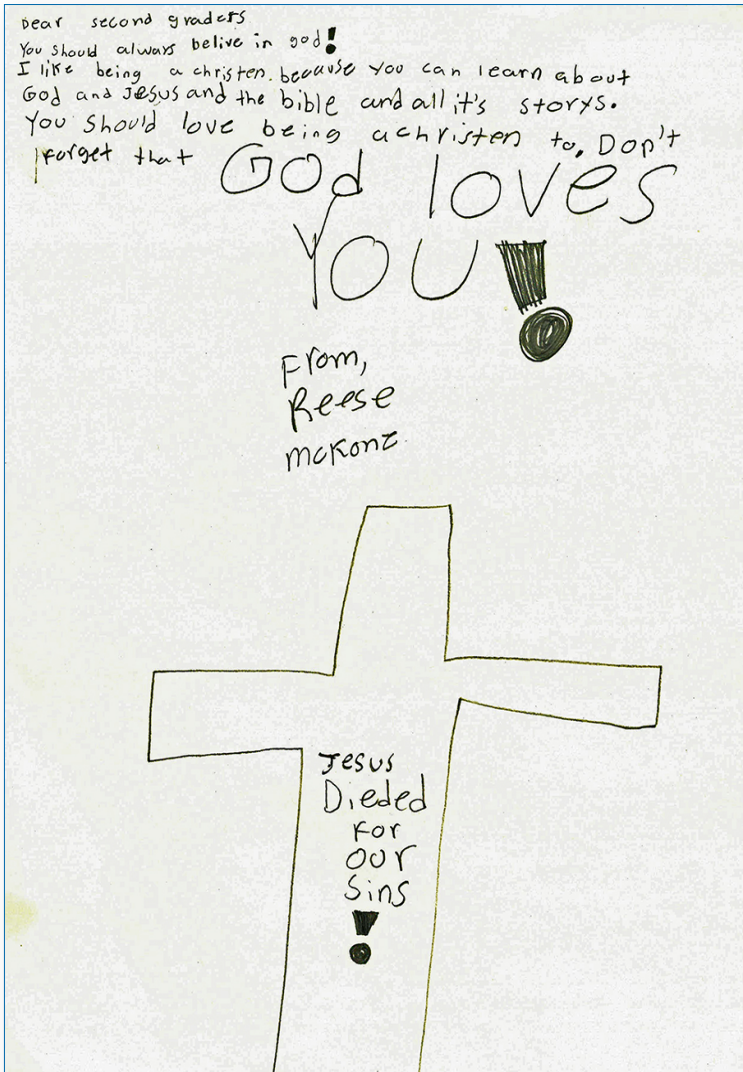 Dear second graders
You should always belive in god!
I like being a christen. because you can learn about
God and Jesus and the bible and all it's storys.
You should love being a christen to. Don't
forget that God loves
You!
From,
Reese
McKone
Jesus
Dieded
For
our
Sins
!